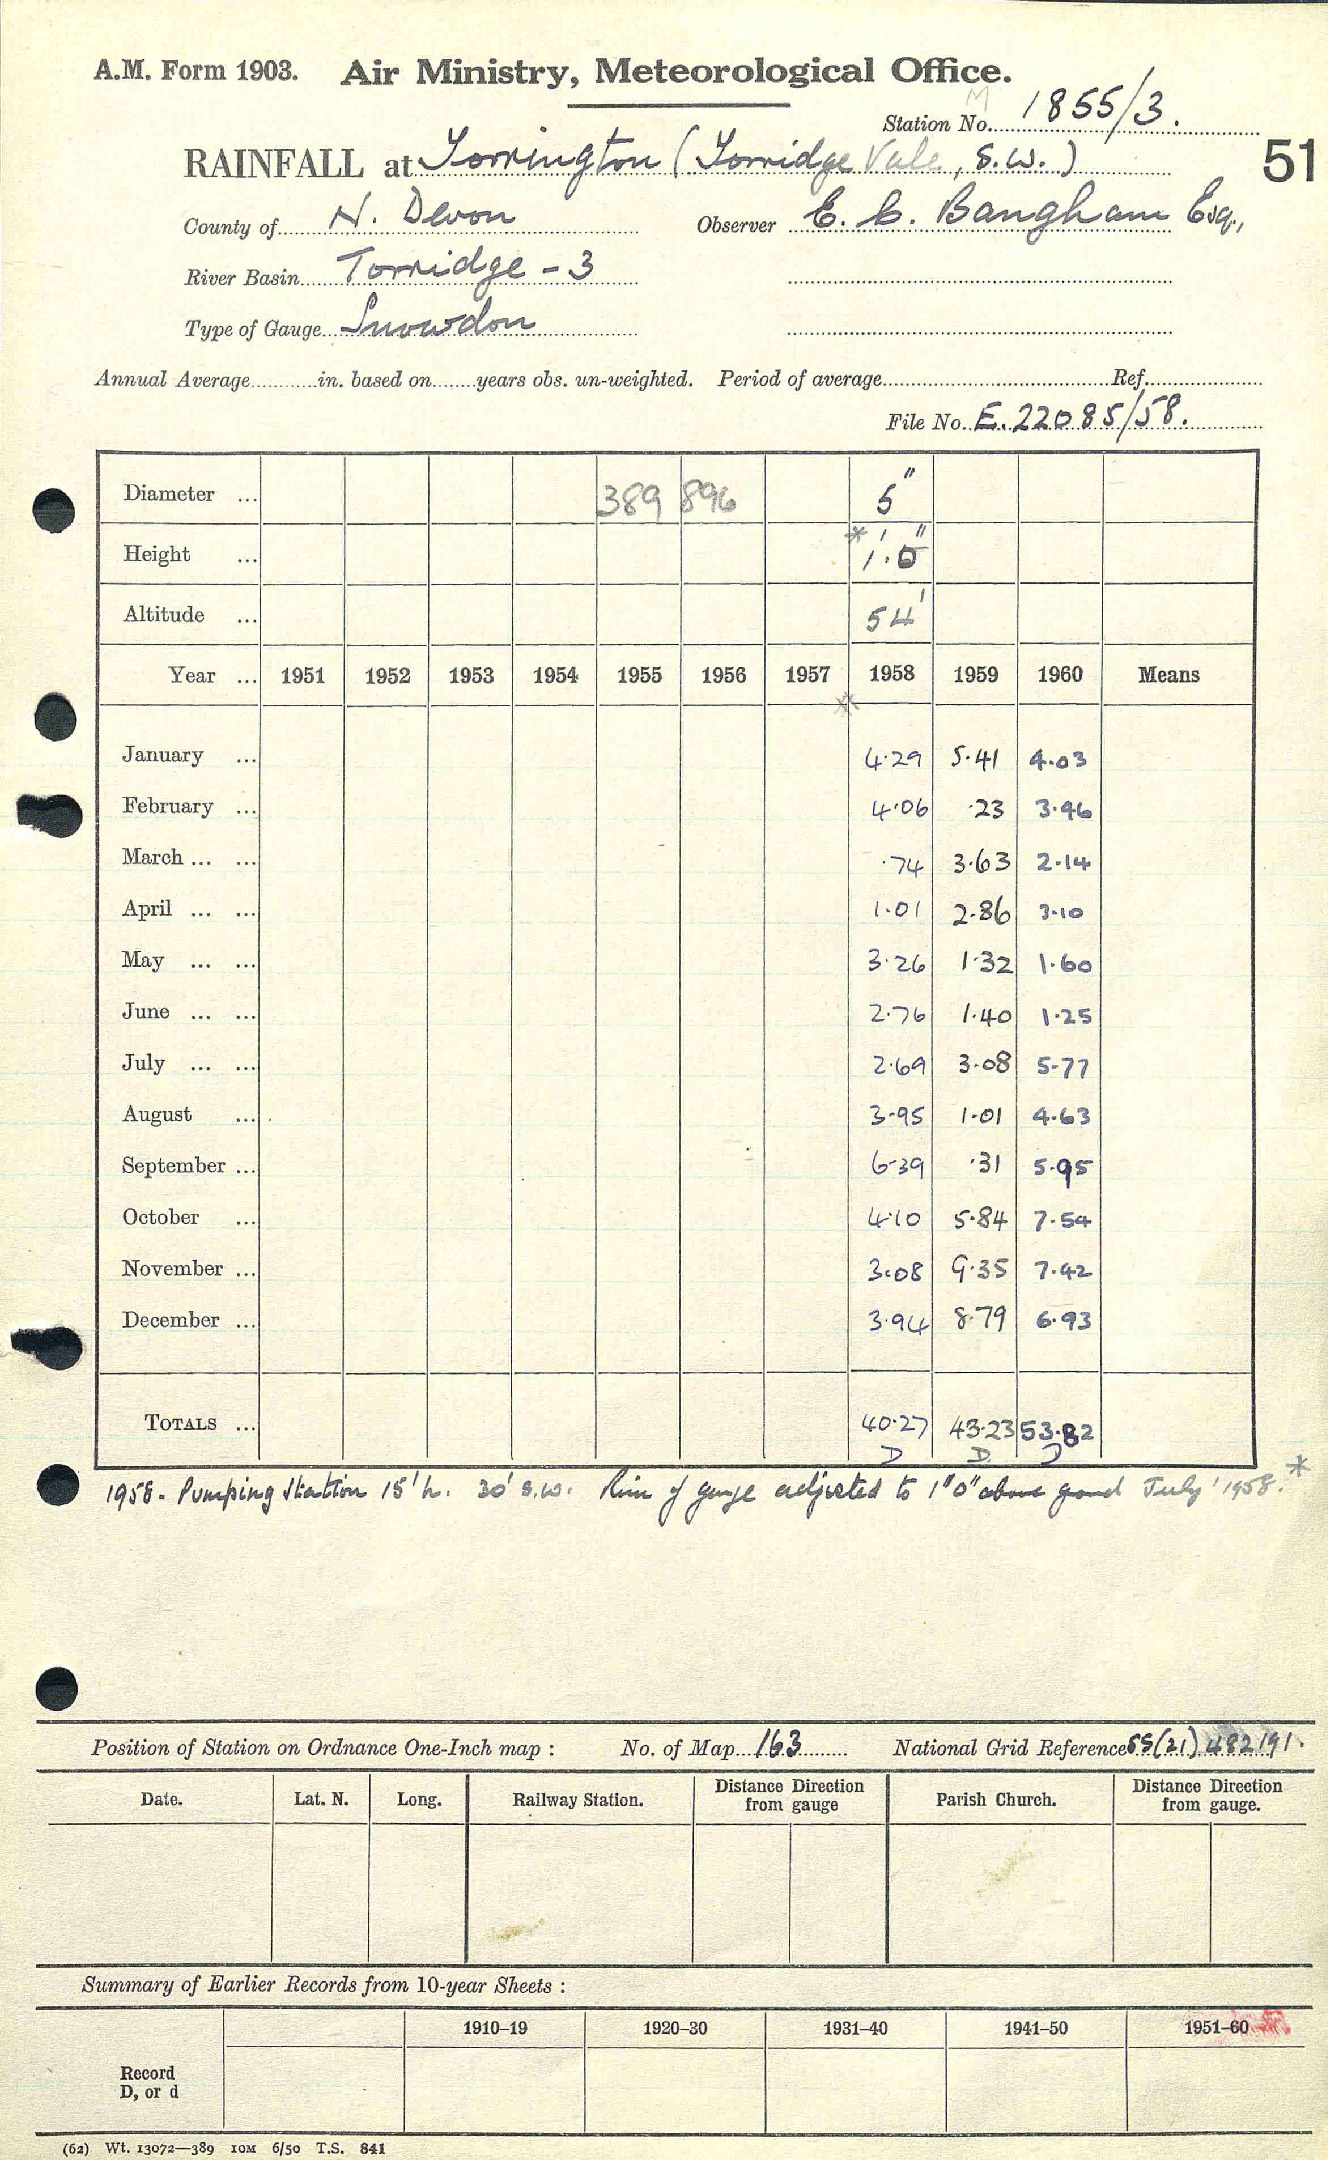 A.M. Form 1903. Air Ministry, Meteorological Office.
M
Station No. 1855/3.
RAINFALL at Torrington (Torridge Vale, S.W.) 51
County of N. Devon Observer E. C. Bangham Esq.,
River Basin Torridge - 3
Type of Gauge Snowdon
Annual Average in. based on years obs. un-weighted. Period of average Ref.
File No. E.22085/58.
Diameter ... 389 896 5"
Height ... * 1'.0"
Altitude ... 54'
Year ... 1951 1952 1953 1954 1955 1956 1957 1958 1959 1960 Means
January ... 4.29 5.41 4.03
February ... 4.06 .23 3.46
March ... ... .74 3.63 2.14
April ... ... 1.01 2.86 3.10
May ... ... 3.26 1.32 1.60
June ... ... 2.76 1.40 1.25
July ... ... 2.69 3.08 5.77
August ... 3.95 1.01 4.63
September ... 6.39 .31 5.95
October ... 4.10 5.84 7.54
November ... 3.08 9.35 7.42
December ... 3.94 8.79 6.93
TOTALS ... 40.27 43.23 53.82
D D D
1958. Pumping Station 15'h. 30' S.W. Rim of gauge adjusted to 1"0" above ground July 1958. *
Position of Station on Ordnance One-Inch map : No. of Map 163 National Grid Reference SS(21) 482191.
Date. Lat. N. Long. Railway Station. Distance Direction from gauge Parish Church. Distance Direction from gauge.
Summary of Earlier Records from 10-year Sheets :
1910–19 1920–30 1931–40 1941–50 1951–60
Record
D, or d
(62) Wt. 13072—389 10M 6/50 T.S. 841